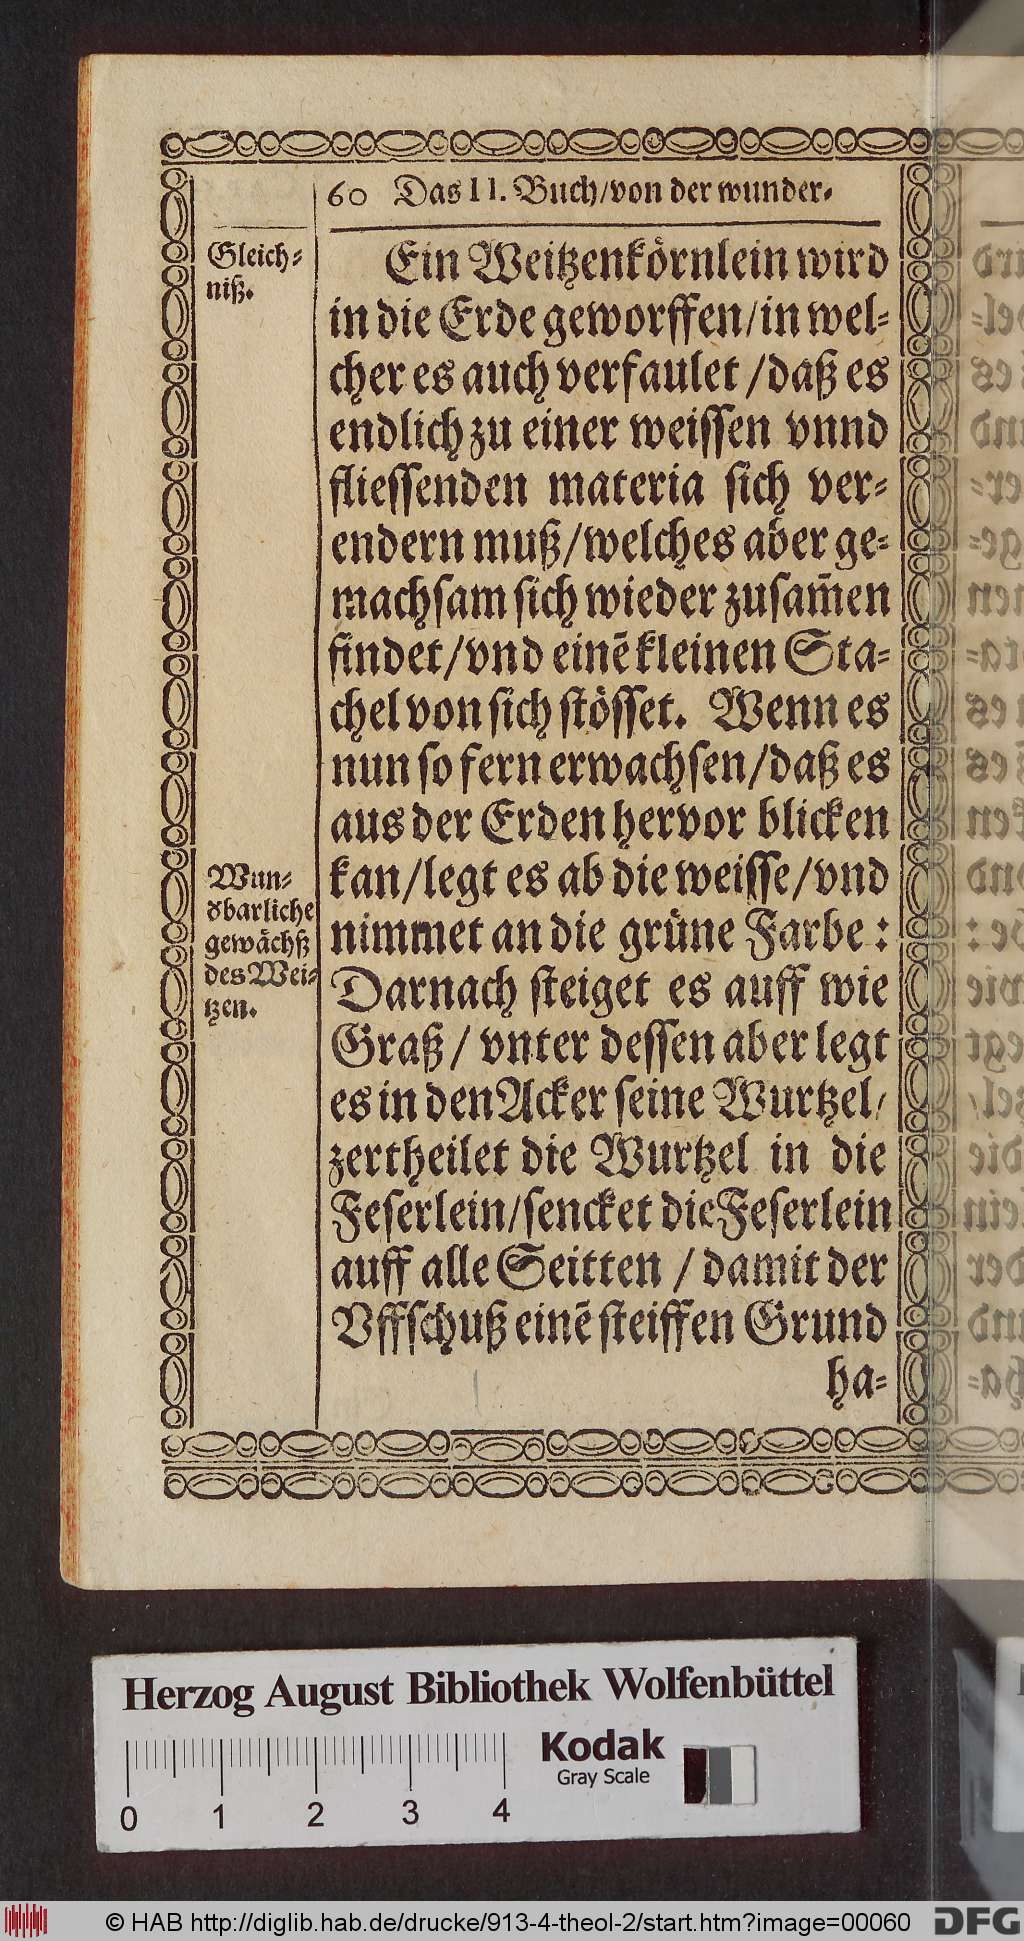 60 Das II. Buch/von der wunder-
Gleich-
niß.
Ein Weitzenkörnlein wird
in die Erde geworffen/in wel-
cher es auch verfaulet /daß es
endlich zu einer weissen vnnd
fliessenden materia sich ver-
endern muß/welches aber ge-
machsam sich wieder zusam̃en
findet/vnd einẽ kleinen Sta-
chel von sich stösset. Wenn es
nun so fern erwachsen/daß es
aus der Erden hervor blicken
kan/legt es ab die weisse/vnd
nimmet an die grüne Farbe:
Darnach steiget es auff wie
Graß/ vnter dessen aber legt
es in den Acker seine Wurtzel/
zertheilet die Wurtzel in die
Feserlein/sencket die Feserlein
auff alle Seitten /damit der
Vffschuß einẽ steiffen Grund
ha-
Wun-
dbarliche
gewächß
des Wei-
tzen.
Herzog August Bibliothek Wolfenbüttel
Kodak
Gray Scale
0 1 2 3 4
© HAB http://diglib.hab.de/drucke/913-4-theol-2/start.htm?image=00060
DFG